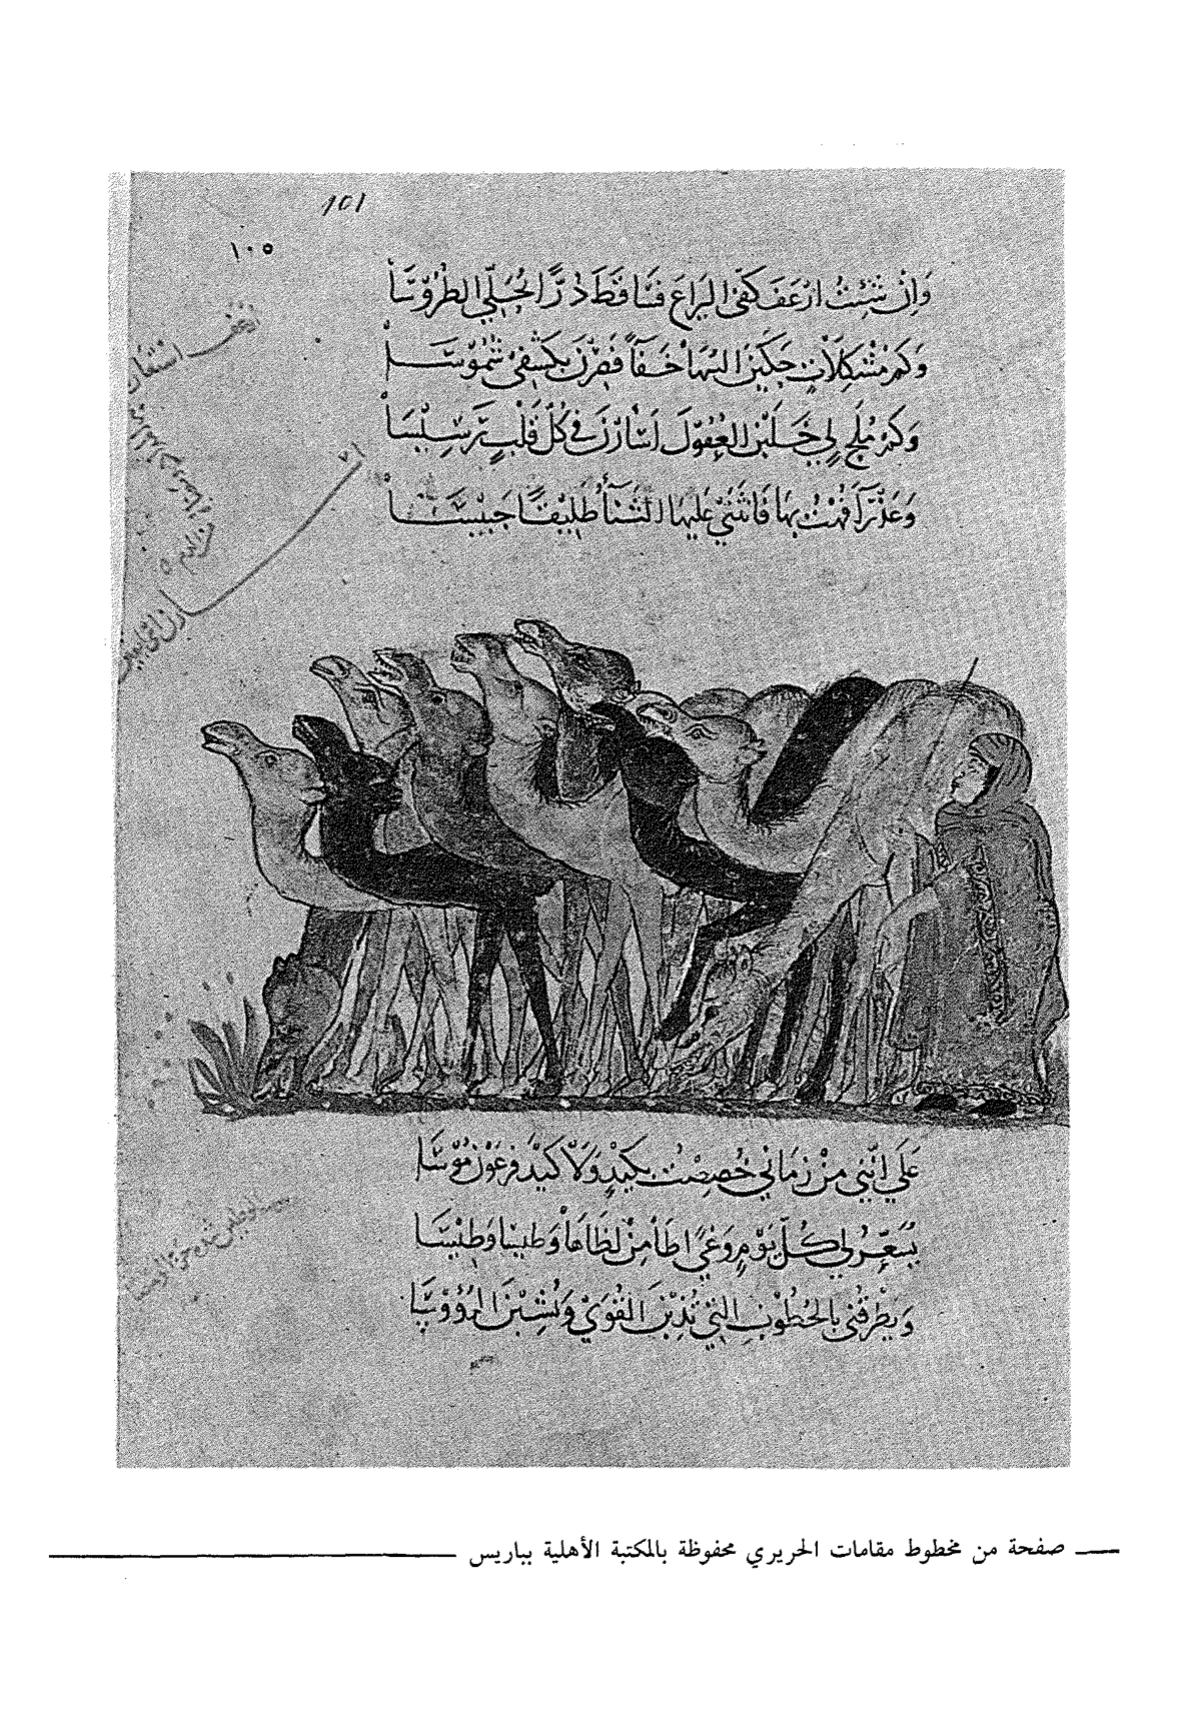 101
١٠٥
وَاِنْ شِئْتُ ارْعَفَ كَفّى اليَرَاعَ فسَاقَطَ دُرًّا يُحَلّي الطُّرُوْسَا
وَكَمْ مُشْكِلَاتٍ حَكَيْنَ السُهَا خَفَآءً فَصِرْنَ بِكَشْفِى شُمُوْسَا
وَكَمْ مُلَحٍ لِي خَلَبْنَ العُقُوْلَ اَسْأَرْنَ فى كُلّ قَلْبٍ رَسِيْسَا
وَعَذْرَآءَ فُهْتُ بِهَا فَانْثَنَى عَلَيهَا الثَنَآءُ طَلِيْقًا حَبِيْسَا
عَلَى انَّنِي مِنْ زمَانِي خُصِصْتُ بِكَيْدٍ وَلَا كَيْدَ فِرعَوْنَ مُوْسَا
يُسَعِّرُ لِي كُلَّ يَوْمٍ وَغًى اطَأُ مِنْ لظَاهَا وَطيسًا وَطِيْسَا
وَيَطْرقُنى بالخُطُوْبِ التِي يُذِبْنَ القُوَىْ وَيُشِبْنَ الرُؤُوْسَا
صفحة من مخطوط مقامات الحريري محفوظة بالمكتبة الأهلية بباريس